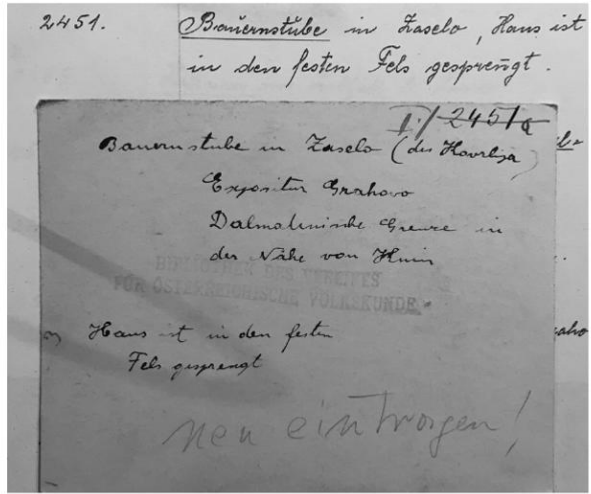 2451.
Bauernstube in Zaselo, Haus ist
in den festen Fels gesprengt.
I/2451a
Bauernstube in Zaselo (des Havrlija)
Expositur Grahovo
Dalmatinische Grenze in
der Nähe von Knin
BIBLIOTHEK DES VEREINES
FÜR ÖSTERREICHISCHE VOLKSKUNDE
Haus ist in den festen
Fels gesprengt
neu eintragen!